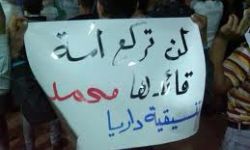 لن تركع امة
قائدها محمد
تنسيقية داريا